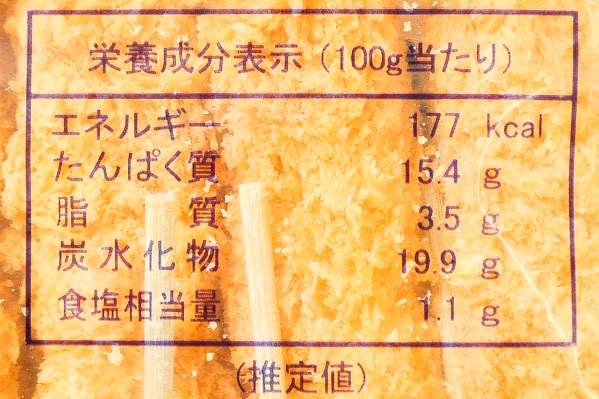 栄養成分表示（100g当たり）
エネルギー 177 kcal
たんぱく質 15.4 g
脂質 3.5 g
炭水化物 19.9 g
食塩相当量 1.1 g
（推定値）